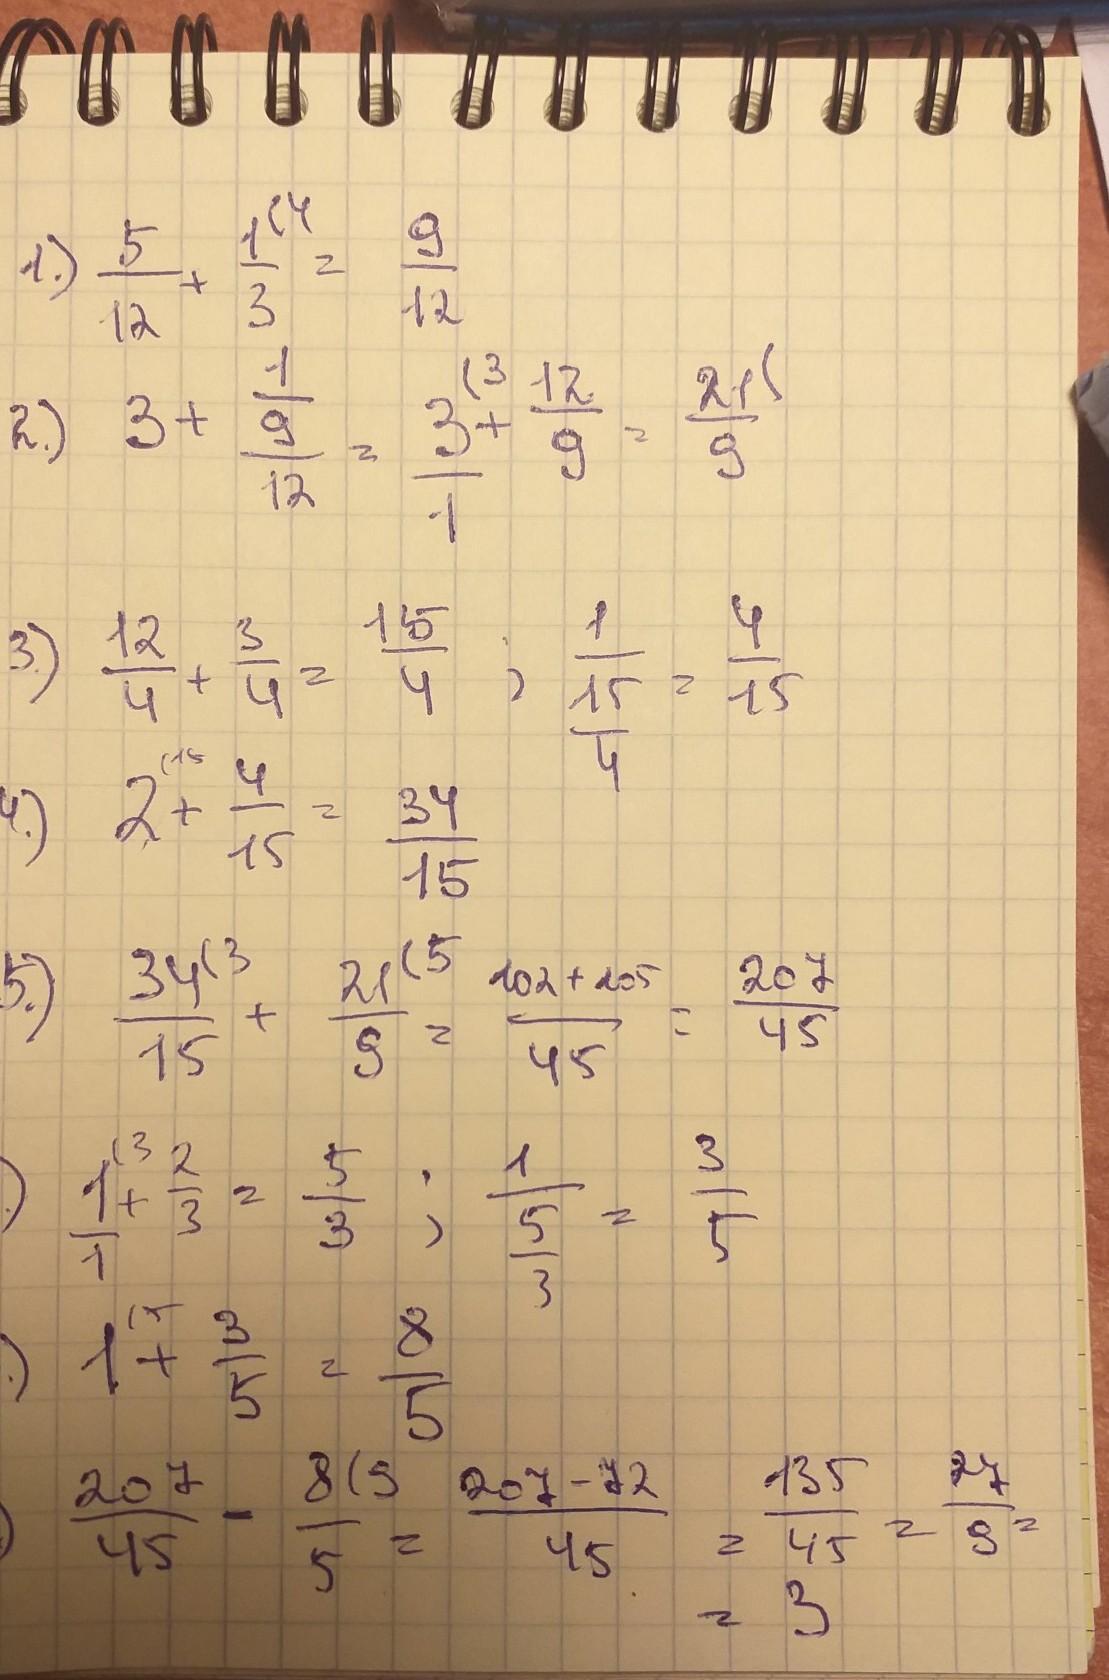 1.) 5/12 + 1(4/3 = 9/12
2.) 3 + 1/(9/12) = 3(3/1 + 12/9 = 21(/9
3.) 12/4 + 3/4 = 15/4 ; 1/(15/4) = 4/15
4.) 2(15 + 4/15 = 34/15
5.) 34(3/15 + 21(5/9 = 102+105/45 = 207/45
) 1(3/1 + 2/3 = 5/3 ; 1/(5/3) = 3/5
.) 1 + 3/5 = 8/5
) 207/45 - 8(9/5 = 207-72/45 = 135/45 = 27/9 =
= 3